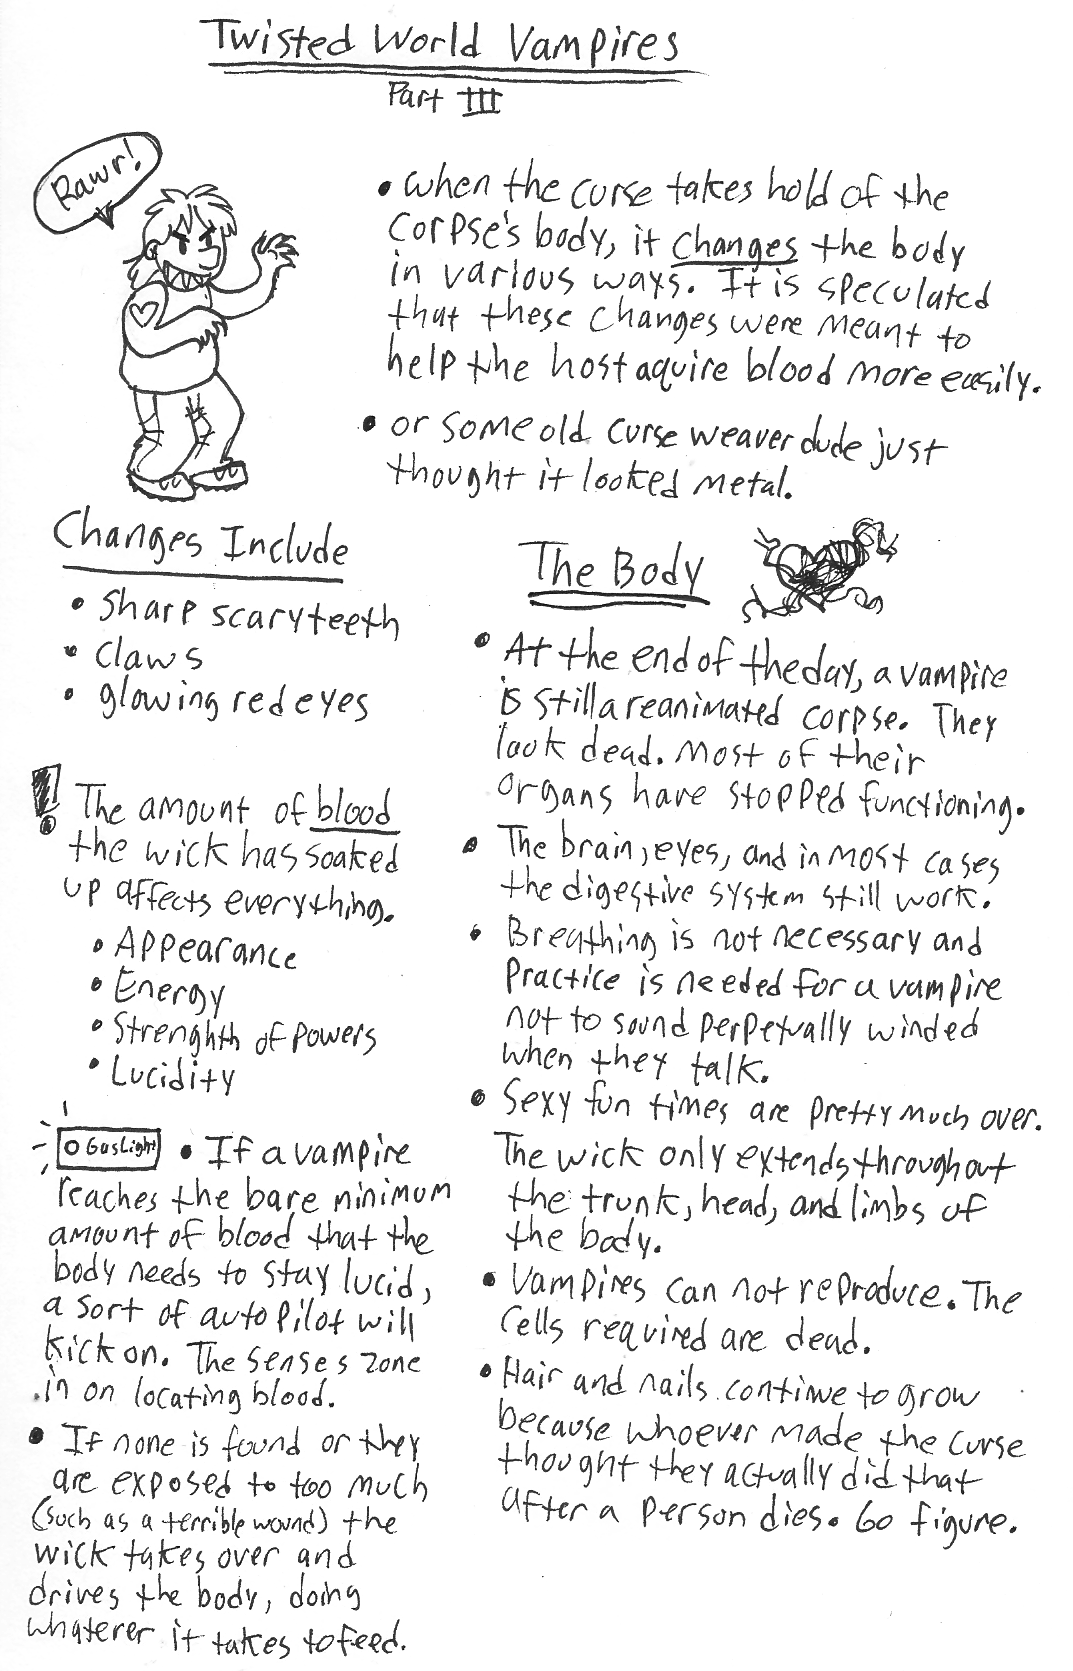 Twisted World Vampires
Part III
Rawr!
• when the curse takes hold of the
corpse's body, it changes the body
in various ways. It is speculated
that these changes were meant to
help the host aquire blood more easily.
• or some old curse weaver dude just
thought it looked metal.
Changes Include
• sharp scary teeth
• claws
• glowing red eyes
! The amount of blood
the wick has soaked
up affects everything.
• Appearance
• Energy
• Strenghth of powers
• Lucidity
GasLight
• If a vampire
reaches the bare minimum
amount of blood that the
body needs to stay lucid,
a sort of auto pilot will
kick on. The senses zone
in on locating blood.
• If none is found or they
are exposed to too much
(such as a terrible wound) the
wick takes over and
drives the body, doing
whaterer it takes to feed.
The Body
• At the end of the day, a vampire
is still a reanimated corpse. They
look dead. Most of their
organs have stopped functioning.
• The brain, eyes, and in most cases
the digestive system still work.
• Breathing is not necessary and
practice is needed for a vampire
not to sound perpetually winded
when they talk.
• Sexy fun times are pretty much over.
The wick only extends throughout
the trunk, head, and limbs of
the body.
• Vampires can not reproduce. The
cells required are dead.
• Hair and nails continue to grow
because whoever made the curse
thought they actually did that
after a person dies. Go figure.